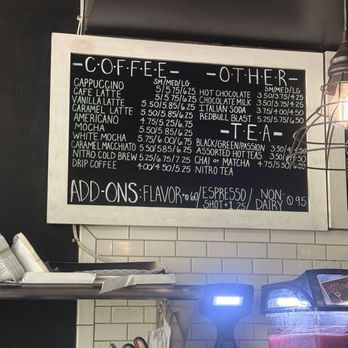 -COFFEE-
SM/MED/LG
CAPPUCCINO 5/5.75/6.25
CAFE LATTE 5/5.75/6.25
VANILLA LATTE 5.50/5.85/6.25
CARAMEL LATTE 5.50/5.85/6.25
AMERICANO 4.75/5.25/6.75
MOCHA 5.50/5.85/6.25
WHITE MOCHA 5.75/6.00/6.75
CARAMEL MACCHIATO 5.50/5.85/6.25
NITRO COLD BREW 5.25/6.75/7.25
DRIP COFFEE 4.00/4.50/5.25
-OTHER-
SM/MED/LG
HOT CHOCOLATE 3.50/3.75/4.25
CHOCOLATE MILK 3.50/3.75/4.25
ITALIAN SODA 3.75/4.00/4.50
REDBULL BLAST 5.25/5.75/6.50
-TEA-
BLACK/GREEN/PASSION
ASSORTED HOT TEAS
CHAI or MATCHA 4.75/5.75/6.50
NITRO TEA
ADD-ONS: FLAVOR +0.60/ESPRESSO SHOT +1.25/NON-DAIRY 0.95